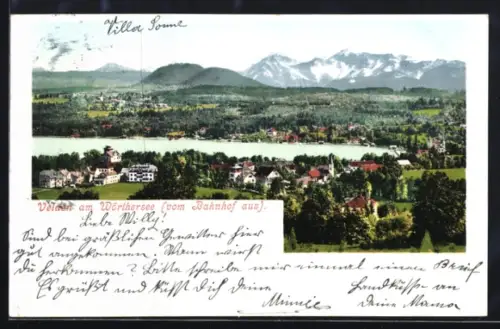 Villa Sonne
Velden am Wörthersee (vom Bahnhof aus).
Liebe Willy!
Sind bei gräßlichen Gewitter hier
gut angekommen. Wann wirst
du herkommen? Bitte schreibe mir einmal einen Brief
Es grüßt und küßt dich deine
Minnie
Handküsse an
deine Mama